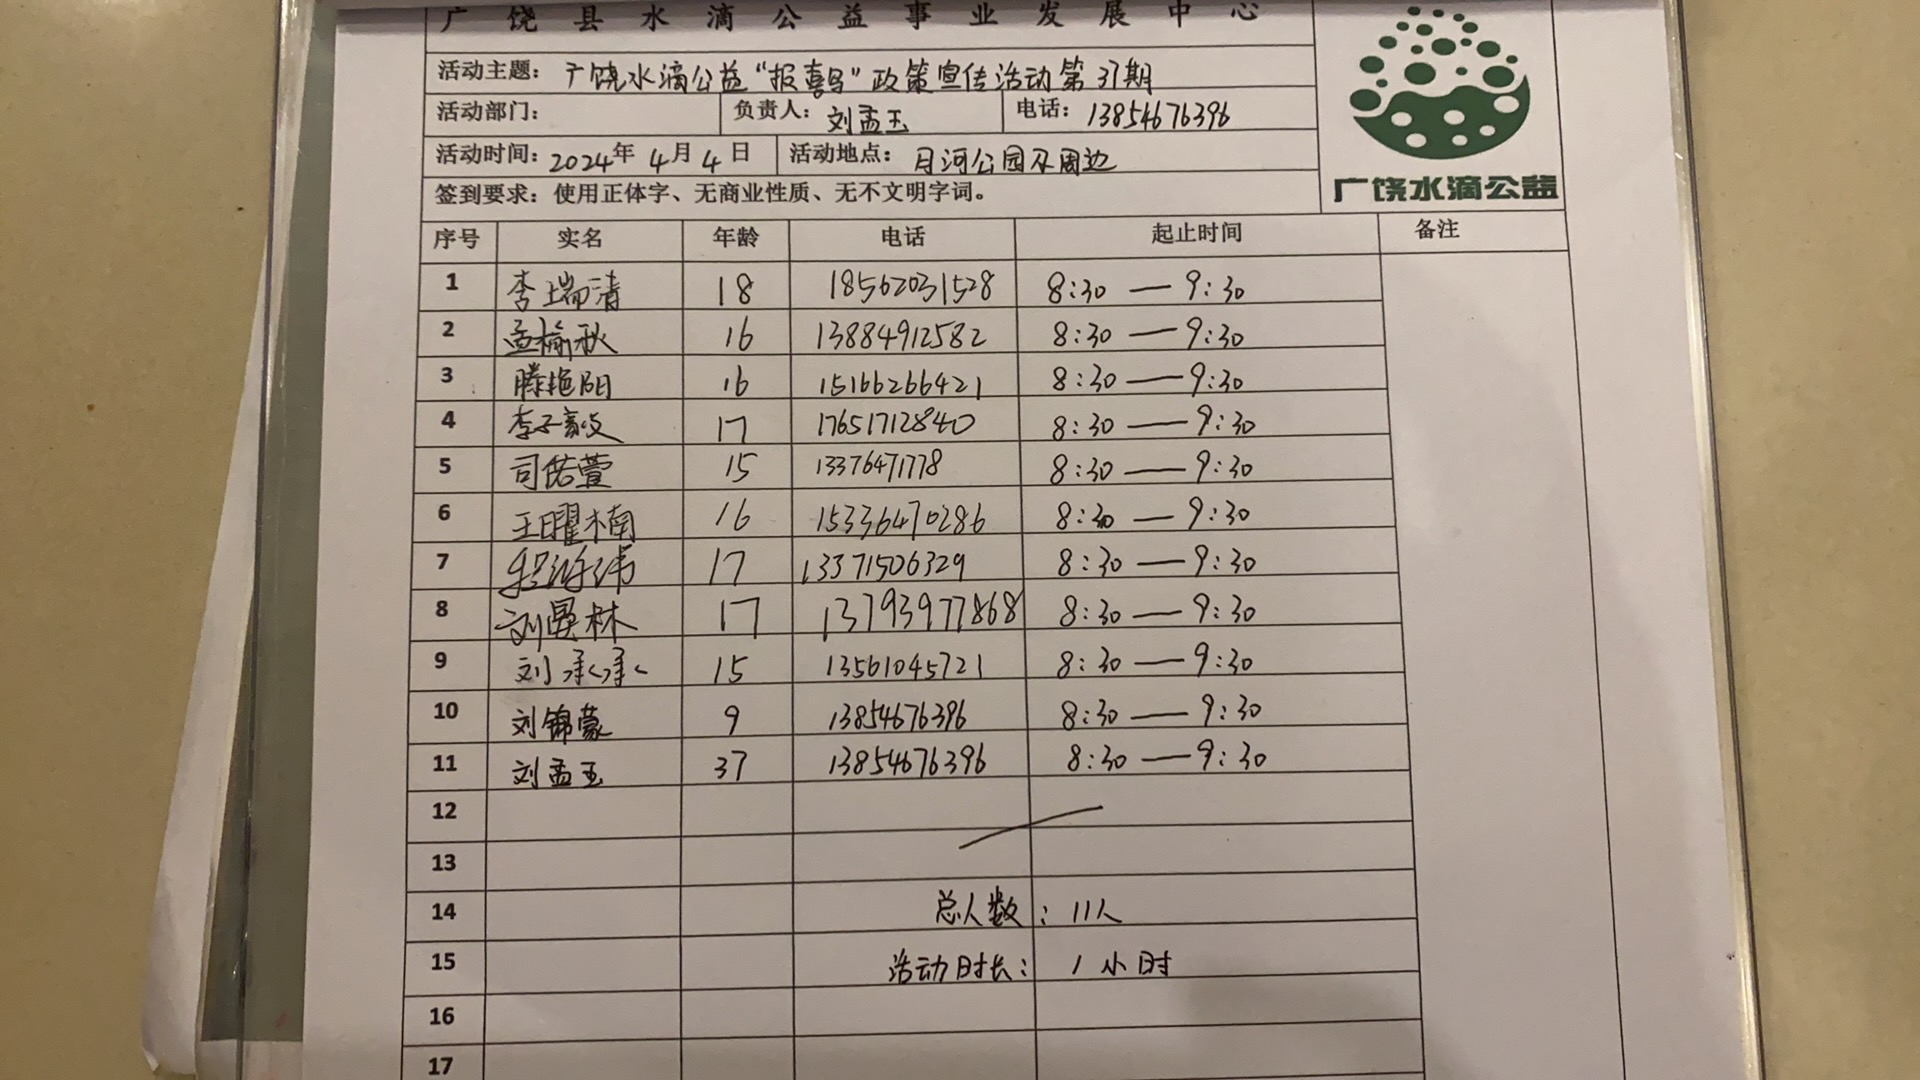 广饶县水滴公益事业发展中心
活动主题: 广饶水滴公益“报喜鸟”政策宣传活动第37期
活动部门: 负责人: 刘孟玉 电话: 13854676396
活动时间: 2024年 4月 4日 活动地点: 月河公园及周边
签到要求: 使用正体字、无商业性质、无不文明字词。
广饶水滴公益
序号 实名 年龄 电话 起止时间 备注
1 李瑞清 18 18562031528 8:30 — 9:30
2 孟榆秋 16 13884912582 8:30 — 9:30
3 滕艳阳 16 15166266421 8:30 — 9:30
4 李子毅 17 17651712840 8:30 — 9:30
5 司偌萱 15 13376471778 8:30 — 9:30
6 王曜楠 16 15336470286 8:30 — 9:30
7 17 13371506329 8:30 — 9:30
8 刘林 17 13793977868 8:30 — 9:30
9 刘承承 15 13561045721 8:30 — 9:30
10 刘锦蒙 9 13854676396 8:30 — 9:30
11 刘孟玉 37 13854676396 8:30 — 9:30
12
13
14 总人数: 11人
15 活动时长: 1小时
16
17